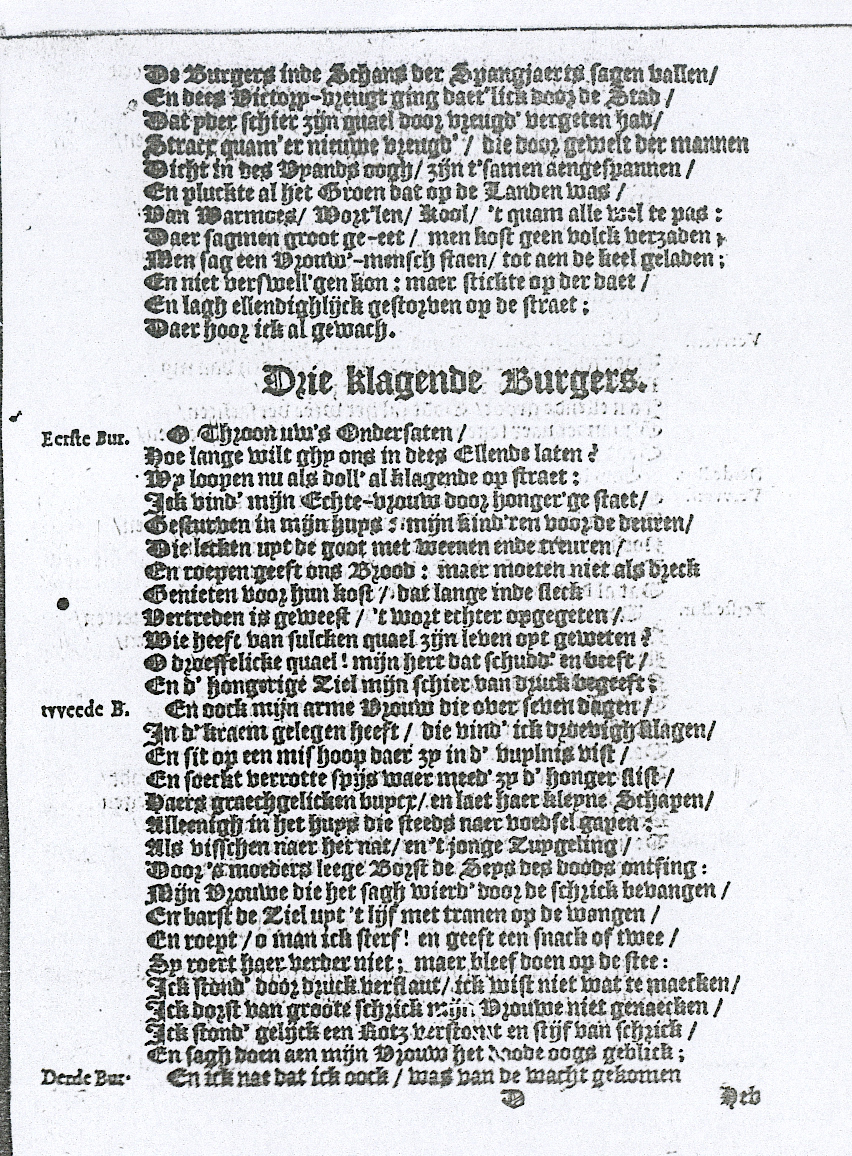 De Burgers inde Schans der Spangjaerts sagen vallen/
En dees Victory-vreugt ging daer'lick door de Stad /
Dat yder schier zijn quael door vreugd' vergeten had/
Stracx quam'er nieuwe vreugd' / die door gewelt der mannen
Dicht in des Vyands oogh/ zijn t'samen aengespannen /
En pluckte al het Groen dat op de Landen was /
Van Warmoes/ Wort'len/ Kool/ 't quam alle wel te pas :
Daer sagmen groot ge-eet / men kost geen volck verzaden ;
Men sag een Vrouw'-mensch staen/ tot aen de keel geladen ;
En niet verswell'gen kon : maer stickte op der daet /
En lagh ellendighlijck gestorven op de straet ;
Daer hoor ick al gewach.
Drie klagende Burgers.
Eerste Bur. O Throon uw's Ondersaten /
Hoe lange wilt ghy ons in dees Ellende laten ?
Wy loopen nu als doll' al klagende op straet :
Ick vind' mijn Echte-vrouw door honger'ge staet/
Gesturven in mijn huys : mijn kind'ren voor de deuren/
Die lecken uyt de goot met weenen ende treuren /
En roepen geeft ons Brood : maer moeten niet als dreck
Genieten voor hun kost / dat lange inde fleck
Vertreden is geweest / 't wort echter opgegeten /
Wie heeft van sulcken quael zijn leven oyt geweten ?
O droeffelicke quael ! mijn hert dat schudd' en beeft /
En d' hongerige Ziel mijn schier van druck begeeft :
tvveede B. En oock mijn arme Vrouw die over seven dagen /
In d' kraem gelegen heeft / die vind' ick droevigh klagen/
En sit op een mis hoop daer zy in d' vuylnis vist /
En soeckt verrotte spijs waer meed' zy d' honger slist /
Haers graechgelicken buycx/ en laet haer kleyne Schapen/
Alleenigh in het huys die steeds naer voedsel gapen :
Als visschen naer het nat/ en 't jonge Zuygeling /
Door 's moeders leege Borst de Seys des doods ontfing :
Mijn Vrouwe die het sagh wierd' door de schrick bevangen /
En barst de Ziel uyt 't lijf met tranen op de wangen /
En roept / o man ick sterf ! en geeft een snack of twee /
Sy roert haer verder niet ; maer bleef doen op de stee :
Ick stond' door druck verflaut/ ick wist niet wat te maecken/
Ick dorst van groote schrick mijn Vrouwe niet genaecken /
Ick stond' gelijck een Rotz verstomt en stijf van schrick /
En sagh doen aen mijn Vrouw het doode oogs geblick ;
Derde Bur. En ick nae dat ick oock / was van de wacht gekomen
D Heb